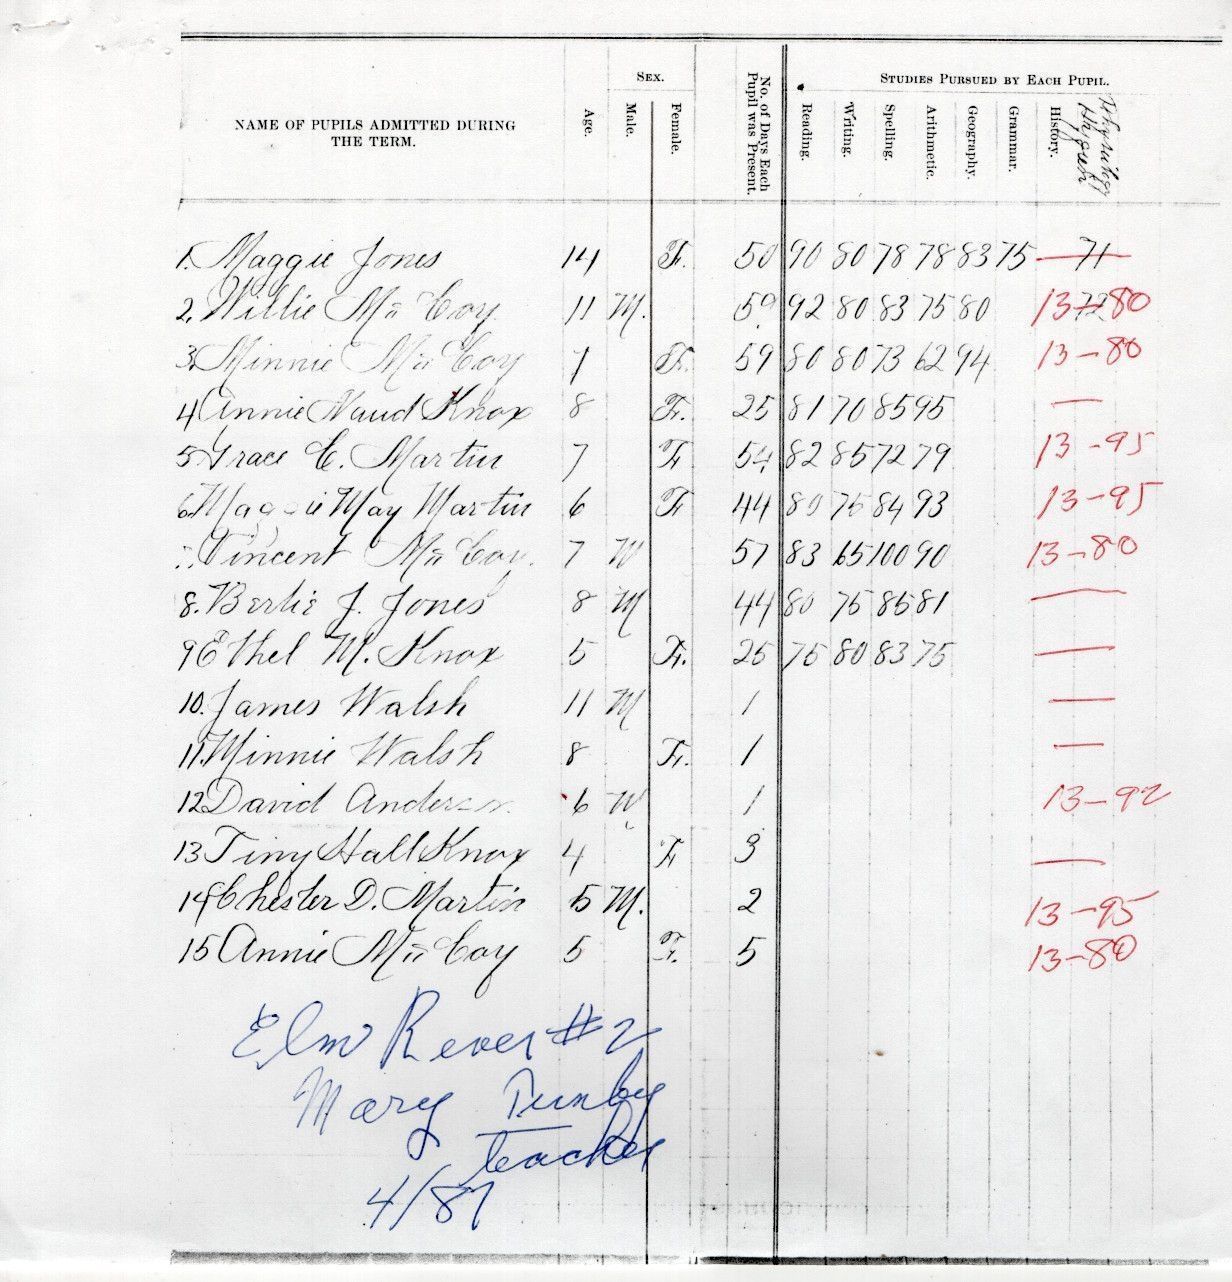 SEX.
STUDIES PURSUED BY EACH PUPIL.
NAME OF PUPILS ADMITTED DURING
THE TERM.
Age.
Male.
Female.
No. of Days Each
Pupil was Present.
Reading.
Writing.
Spelling.
Arithmetic.
Geography.
Grammar.
History.
1. Maggie Jones 14 F. 50 90 80 78 78 83 75 — 71
2. Willie Mc Coy 11 M. 59 92 80 83 75 80 72 13-80
3. Minnie Mc Coy 7 F. 59 80 80 73 62 94 13-80
4 Annie Maud Knox 8 F. 25 81 70 85 95 —
5 Grace E. Martin 7 F 54 82 85 72 79 13-95
6. Maggie May Martin 6 F 44 80 75 84 93 13-95
Vincent Mc Coy. 7 M 57 83 65 100 90 13-80
8. Bertie J. Jones 8 M 44 80 75 85 81 —
9 Ethel M. Knox 5 F. 25 75 80 83 75 —
10. James Walsh 11 M 1 —
11. Minnie Walsh 8 F. 1 —
12 David 6 M 1 13-92
13 Tiny Hall Knox 4 F 3 —
14 Chester D. Martin 5 M. 2 13-95
15 Annie Mc Coy 5 F. 5 13-80
Elm River #2
Mary
teacher
4/87